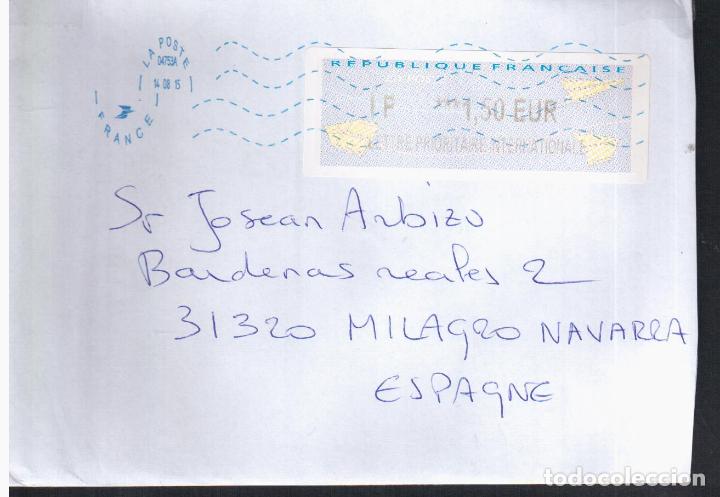 LA POSTE
04753A
14 08 15
FRANCE
RÉPUBLIQUE FRANÇAISE
LA POSTE
LP ***1,50 EUR
LETTRE PRIORITAIRE INTERNATIONALE
Sr Josean Arbizu
Bardenas reales 2
31320 MILAGRO NAVARRA
ESPAGNE
todocoleccion.net